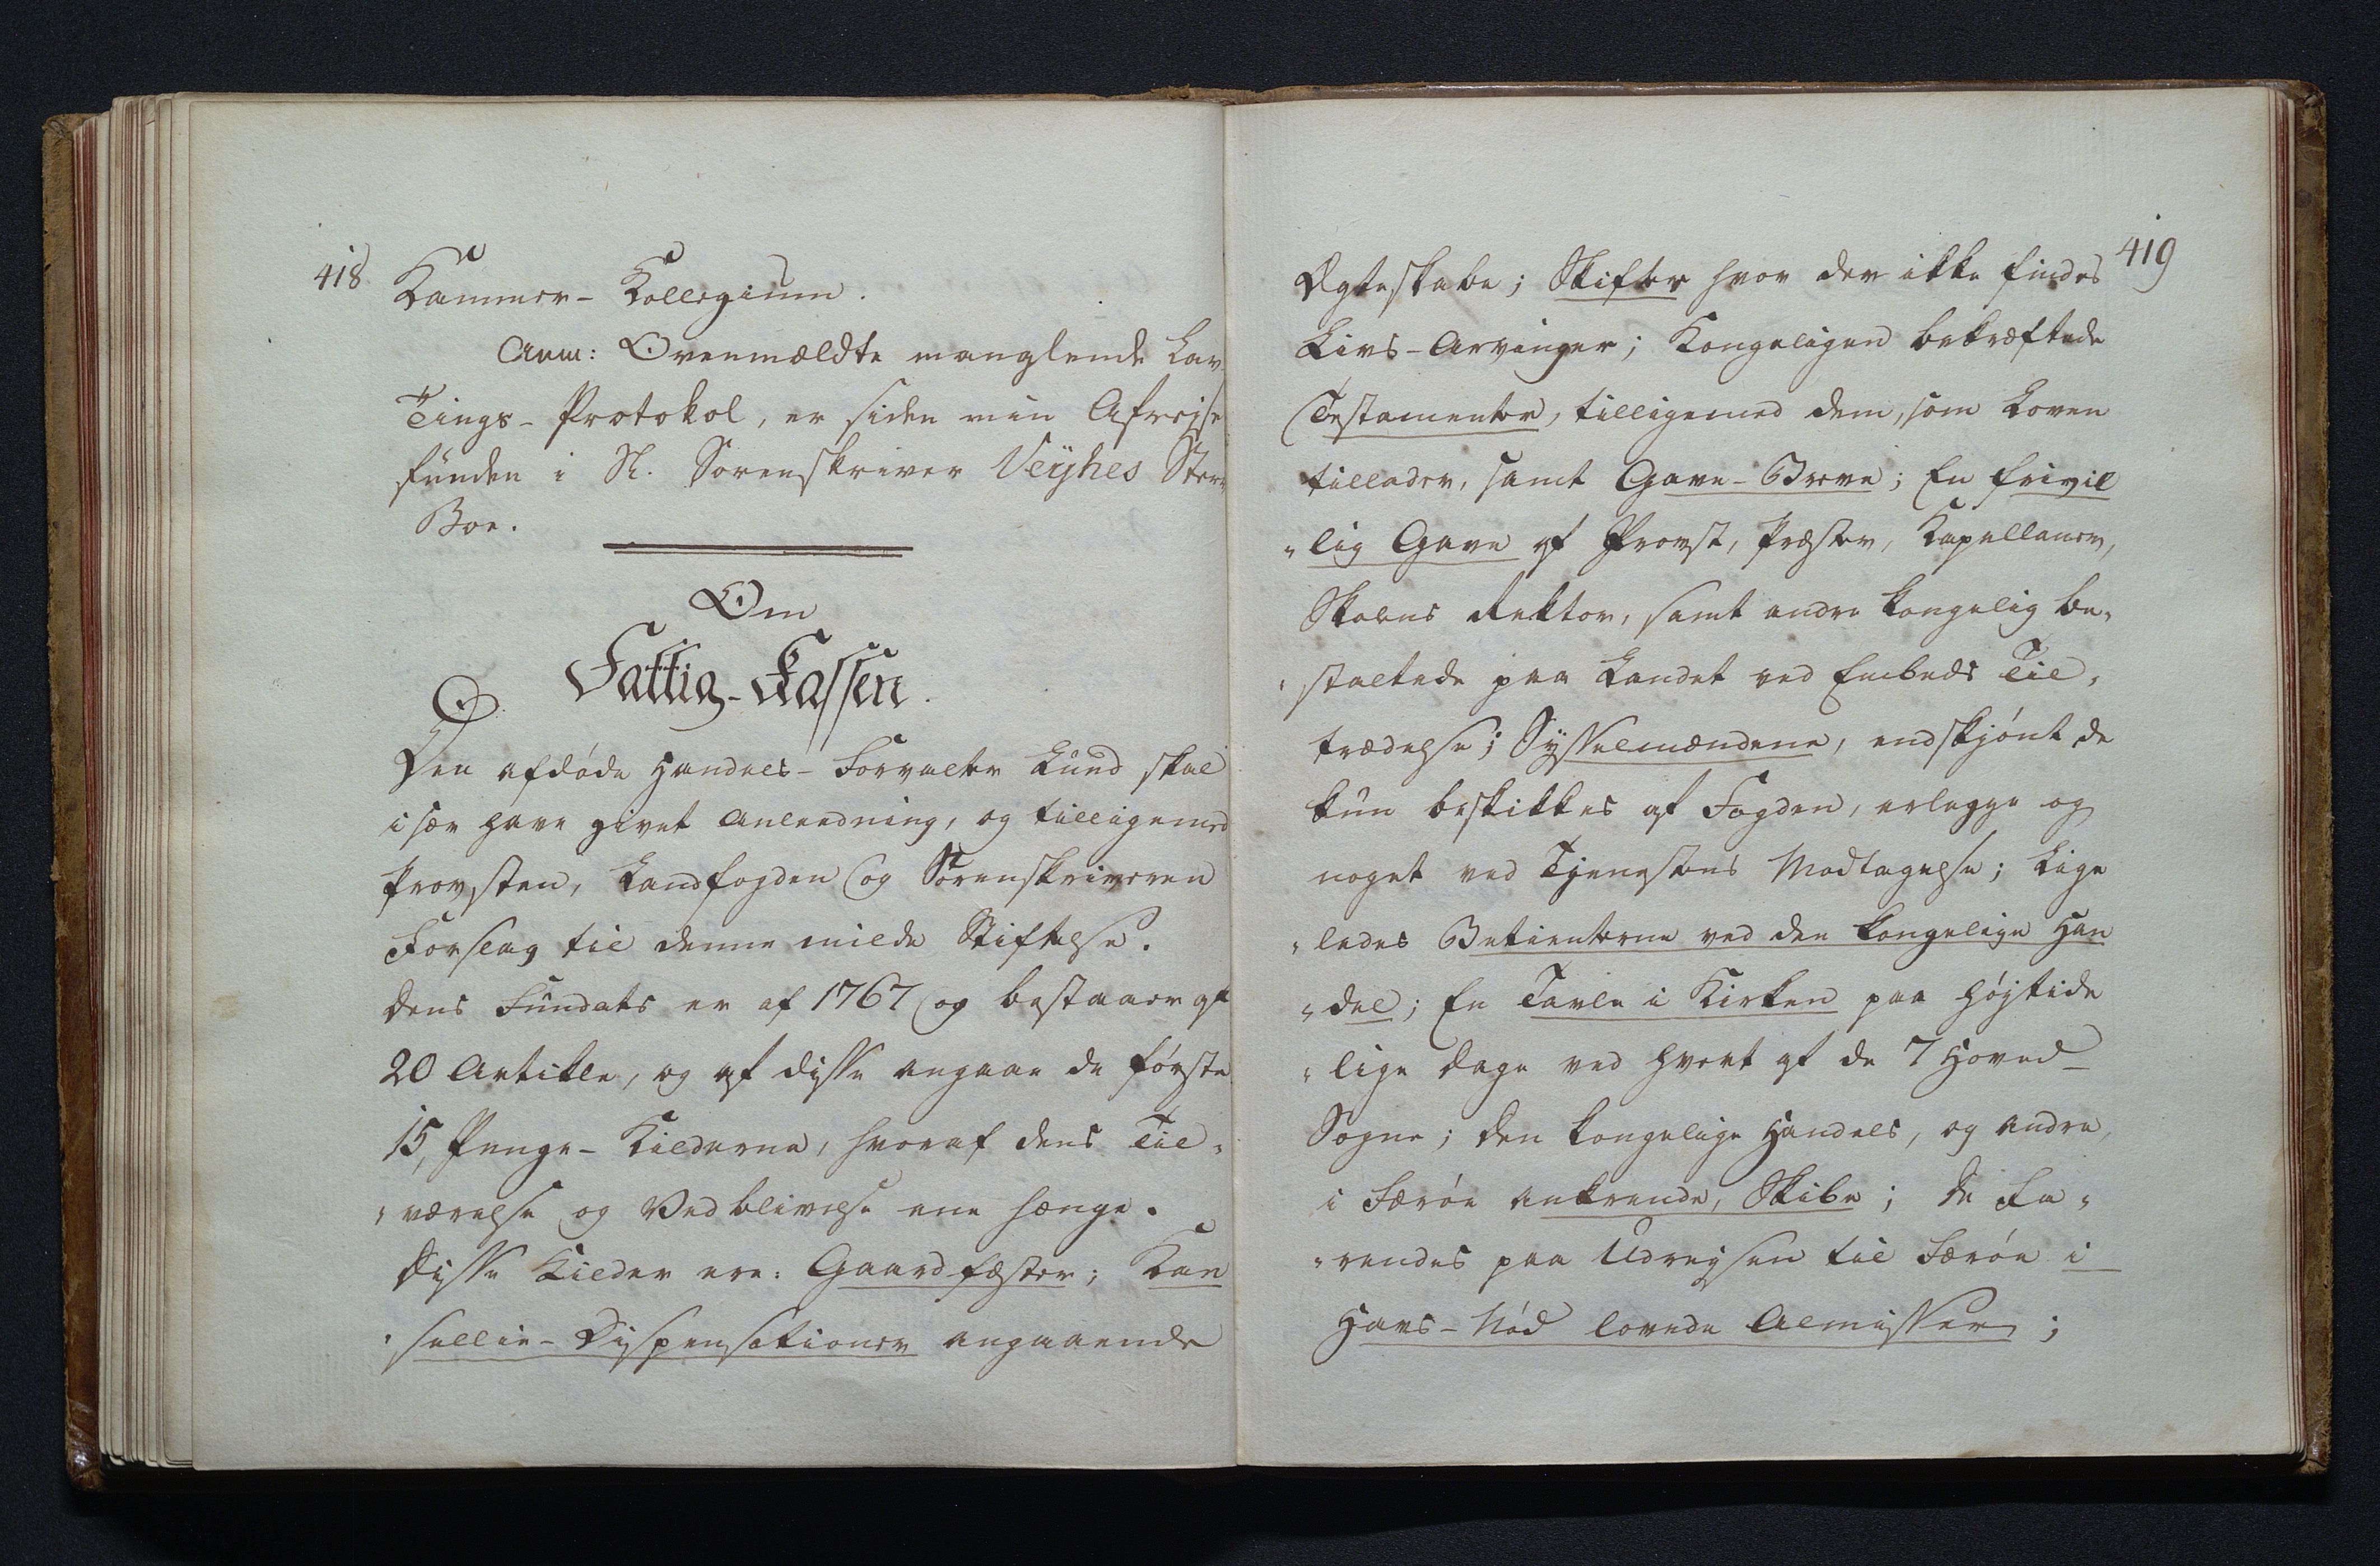 418
Kammer- Kollegium.
Anm: Ovenmældte manglende Lav
Tings- Protokol, er siden min Afrejse
funden i Sl. Sorenskriver Veÿhes Sterv
Boe.
Om
Fattig-Kassen.
Den afdøde Handels- Forvalter Lund skal
i sær have givet Anleedning, og tilligemed
Provsten, Landfogden og Sorenskriveren
Forslag til denne milde Stiftelse.
Dens Fundats er af 1767 og bestaaer af
20 Artikle, og af disse angaae de første
15, Penge- Kilderne, hvoraf dens Til-
værelse og Vedblivelse ene hænge.
Disse Kilder ere: Gaardfæster; Kan
sellie- Dispensationer angaaende
419
Ægteskabe; Skifter hvor der ikke findes
Livs- Arvinger; Kongeligen bekræftede
Testamenter, tilligemed dem, som Loven
tillader, samt Gave- Breve; En frivil
lig Gave af Provst, Præster, Kapellaner,
Skolens Rektor, samt andre kongelig be-
staltede paa Landet ved Embeds Til-
trædelse; Sysselmændene, endskjønt de
kun beskikkes af Fogden, erlegge og
noget ved Tjenestens Modtagelse; Lige
ledes Betienterne ved den kongelige Han
del; En Tavle i Kirken paa højtide
lige Dage ved hvert af de 7 Hoved-
Sogne; den kongelige Handels, og andre,
i Færøe ankrende, Skibe; De Fa-
rendes paa Udrejsen til Færøe i
Havs- Nød lovede Almisser;